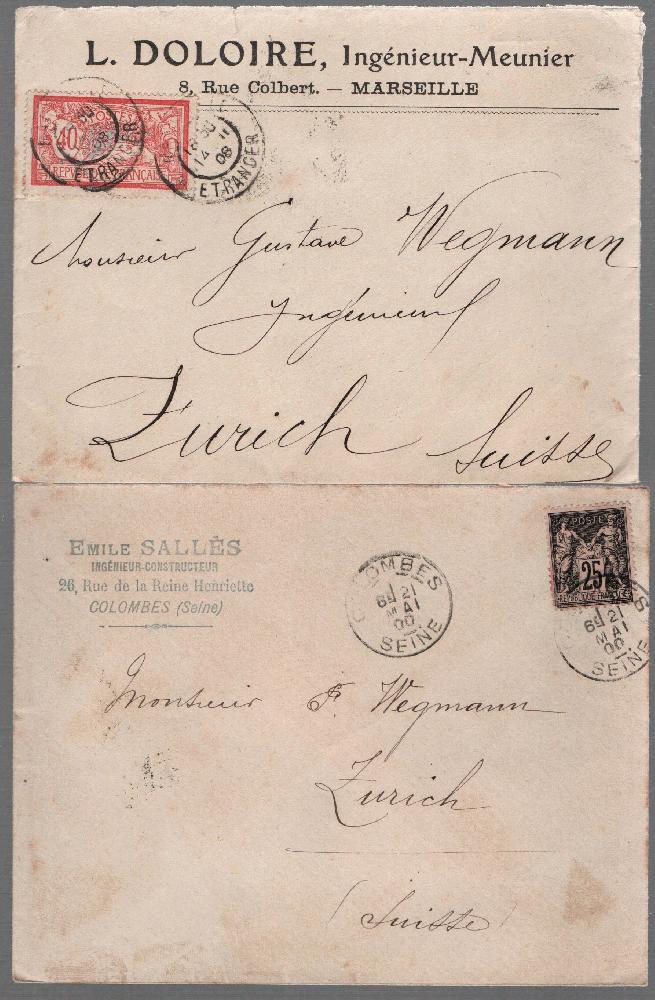 L. DOLOIRE, Ingénieur-Meunier
8, Rue Colbert. — MARSEILLE
40
REPUBLIQUE FRANÇAISE
ETRANGER
18 30
14 11
08
ETRANGER
Monsieur Gustave Wegmann
Ingénieur
Zurich Suisse
EMILE SALLÈS
INGÉNIEUR-CONSTRUCTEUR
26, Rue de la Reine Henriette
COLOMBES (Seine)
COLOMBES
6E 21
MAI
00
SEINE
POSTES
25
REPUBLIQUE FRANÇAISE
6E 21
MAI
00
SEINE
Monsieur F. Wegmann
Zurich
(Suisse)